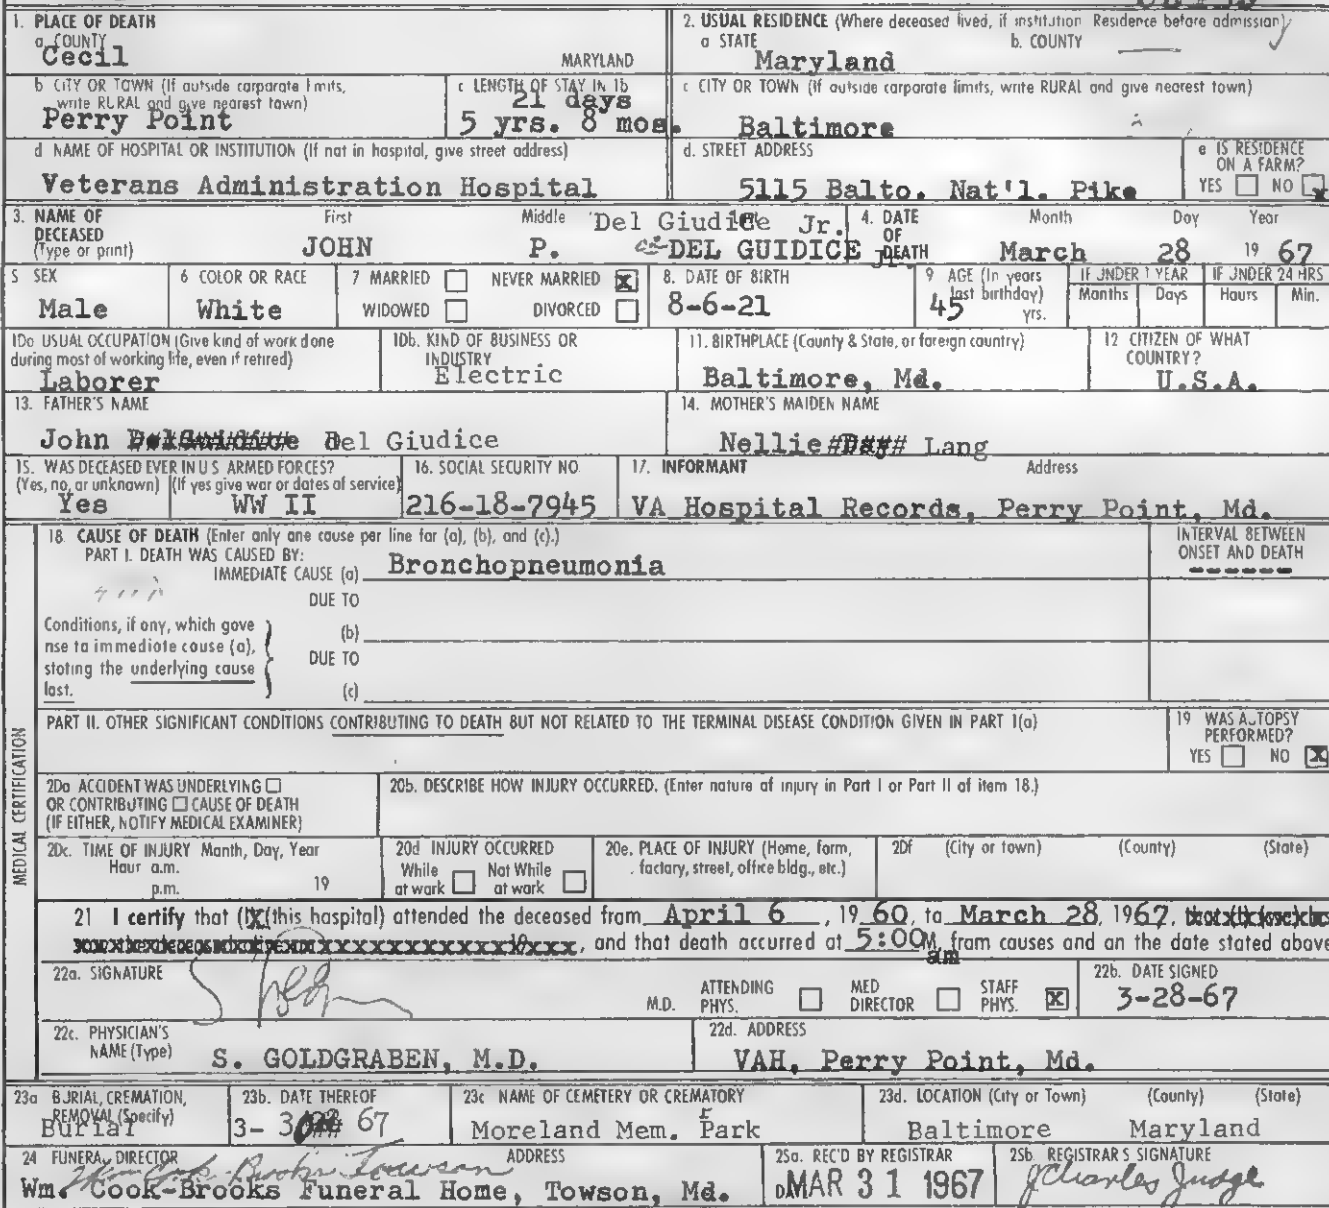 1. PLACE OF DEATH
a. COUNTY
Cecil MARYLAND
2. USUAL RESIDENCE (Where deceased lived, if institution Residence before admission)
a STATE b. COUNTY
Maryland
b CITY OR TOWN (If outside corporate limits, write RURAL and give nearest town)
Perry Point
c LENGTH OF STAY IN 1b
21 days
5 yrs. 8 mos.
c CITY OR TOWN (If outside corporate limits, write RURAL and give nearest town)
Baltimore
d NAME OF HOSPITAL OR INSTITUTION (If not in hospital, give street address)
Veterans Administration Hospital
d. STREET ADDRESS
5115 Balto. Nat'l. Pike
e IS RESIDENCE ON A FARM?
YES NO x
3. NAME OF DECEASED (Type or print)
First Middle Del Giudice Jr.
JOHN P. DEL GUIDICE Jr.
4. DATE OF DEATH
Month Day Year
March 28 19 67
5 SEX
Male
6 COLOR OR RACE
White
7 MARRIED NEVER MARRIED X
WIDOWED DIVORCED
8. DATE OF BIRTH
8-6-21
9 AGE (In years last birthday)
45 yrs.
IF UNDER 1 YEAR
Months Days
IF UNDER 24 HRS
Hours Min.
10a USUAL OCCUPATION (Give kind of work done during most of working life, even if retired)
Laborer
10b. KIND OF BUSINESS OR INDUSTRY
Electric
11. BIRTHPLACE (County & State, or foreign country)
Baltimore, Md.
12 CITIZEN OF WHAT COUNTRY?
U.S.A.
13. FATHER'S NAME
John Del Giudice
14. MOTHER'S MAIDEN NAME
Nellie Lang
15. WAS DECEASED EVER IN U S ARMED FORCES?
(Yes, no, or unknown) (If yes give war or dates of service)
Yes WW II
16. SOCIAL SECURITY NO
216-18-7945
17. INFORMANT Address
VA Hospital Records, Perry Point, Md.
MEDICAL CERTIFICATION
18. CAUSE OF DEATH (Enter only one cause per line for (a), (b), and (c).)
PART I. DEATH WAS CAUSED BY:
IMMEDIATE CAUSE (a) Bronchopneumonia
INTERVAL BETWEEN ONSET AND DEATH
------
DUE TO
Conditions, if any, which gave rise to immediate cause (a), stating the underlying cause last.
(b)
DUE TO
(c)
PART II. OTHER SIGNIFICANT CONDITIONS CONTRIBUTING TO DEATH BUT NOT RELATED TO THE TERMINAL DISEASE CONDITION GIVEN IN PART I(a)
19 WAS AUTOPSY PERFORMED?
YES NO X
20a ACCIDENT WAS UNDERLYING
OR CONTRIBUTING CAUSE OF DEATH
(IF EITHER, NOTIFY MEDICAL EXAMINER)
20b. DESCRIBE HOW INJURY OCCURRED. (Enter nature of injury in Part I or Part II of item 18.)
20c. TIME OF INJURY Month, Day, Year
Hour a.m.
p.m. 19
20d INJURY OCCURRED
While at work Not While at work
20e. PLACE OF INJURY (Home, farm, factory, street, office bldg., etc.)
20f (City or town) (County) (State)
21 I certify that (I) (this hospital) attended the deceased from April 6, 1960, to March 28, 1967,
and that death occurred at 5:00 M, from causes and on the date stated above
am
22a. SIGNATURE
M.D. ATTENDING PHYS. MED DIRECTOR STAFF PHYS. X
22b. DATE SIGNED
3-28-67
22c. PHYSICIAN'S NAME (Type)
S. GOLDGRABEN, M.D.
22d. ADDRESS
VAH, Perry Point, Md.
23a BURIAL, CREMATION, REMOVAL (Specify)
Burial
23b. DATE THEREOF
3- 30 67
23c NAME OF CEMETERY OR CREMATORY
Moreland Mem. Park
23d. LOCATION (City or Town) (County) (State)
Baltimore Maryland
24 FUNERAL DIRECTOR ADDRESS
Wm Cook-Brooks Towson
Wm. Cook-Brooks Funeral Home, Towson, Md.
25a. REC'D BY REGISTRAR
MAR 31 1967
25b. REGISTRAR'S SIGNATURE
J Charles Judge